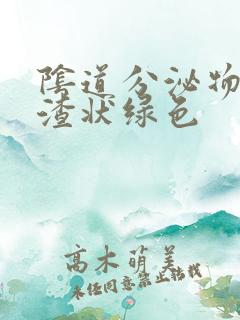 陰道分泌物
渣状绿色
高木萌美
未经同意禁止转载